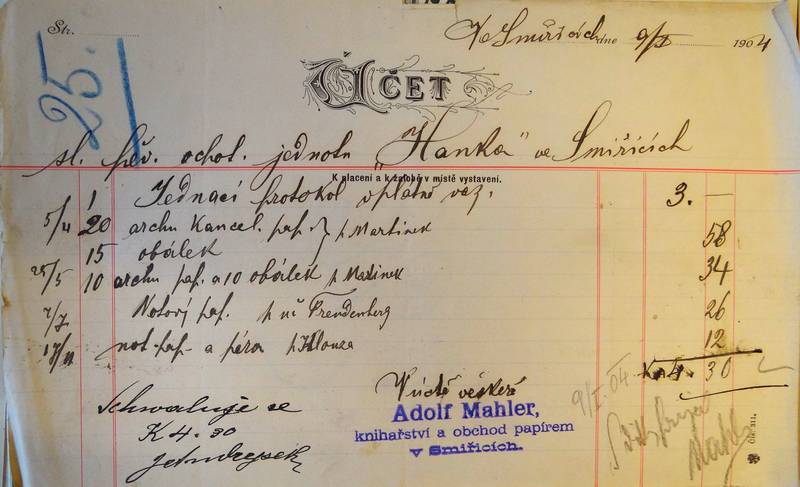 Str.
V Smiřicích dne 9/I 1904
25.
ÚČET
sl. pěv. ochot. jednotu „Hanka" ve Smiřicích
K placení a k žalobě v místě vystavení.
1 Jednací protokol v plátně váz. 3. —
5/4 20 archů kancel. pap. p Martinek
15 obálek 58
25/5 10 archů pap. a 10 obálek p Martinek 34
7/7 Notový pap. p uč Freudenberg 26
17/11 not. pap. a péra p Klouza 12
K 4. 30
V úctě
Adolf Mahler,
knihařství a obchod papírem
v Smiřicích.
9/I. 04
Schvaluje se
K 4.30
Mahler
Čís. 311.